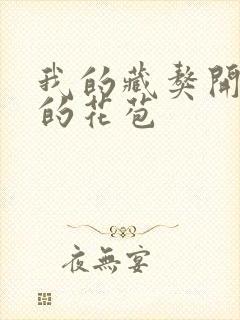 我的藏獒開
的花苞
夜無宴